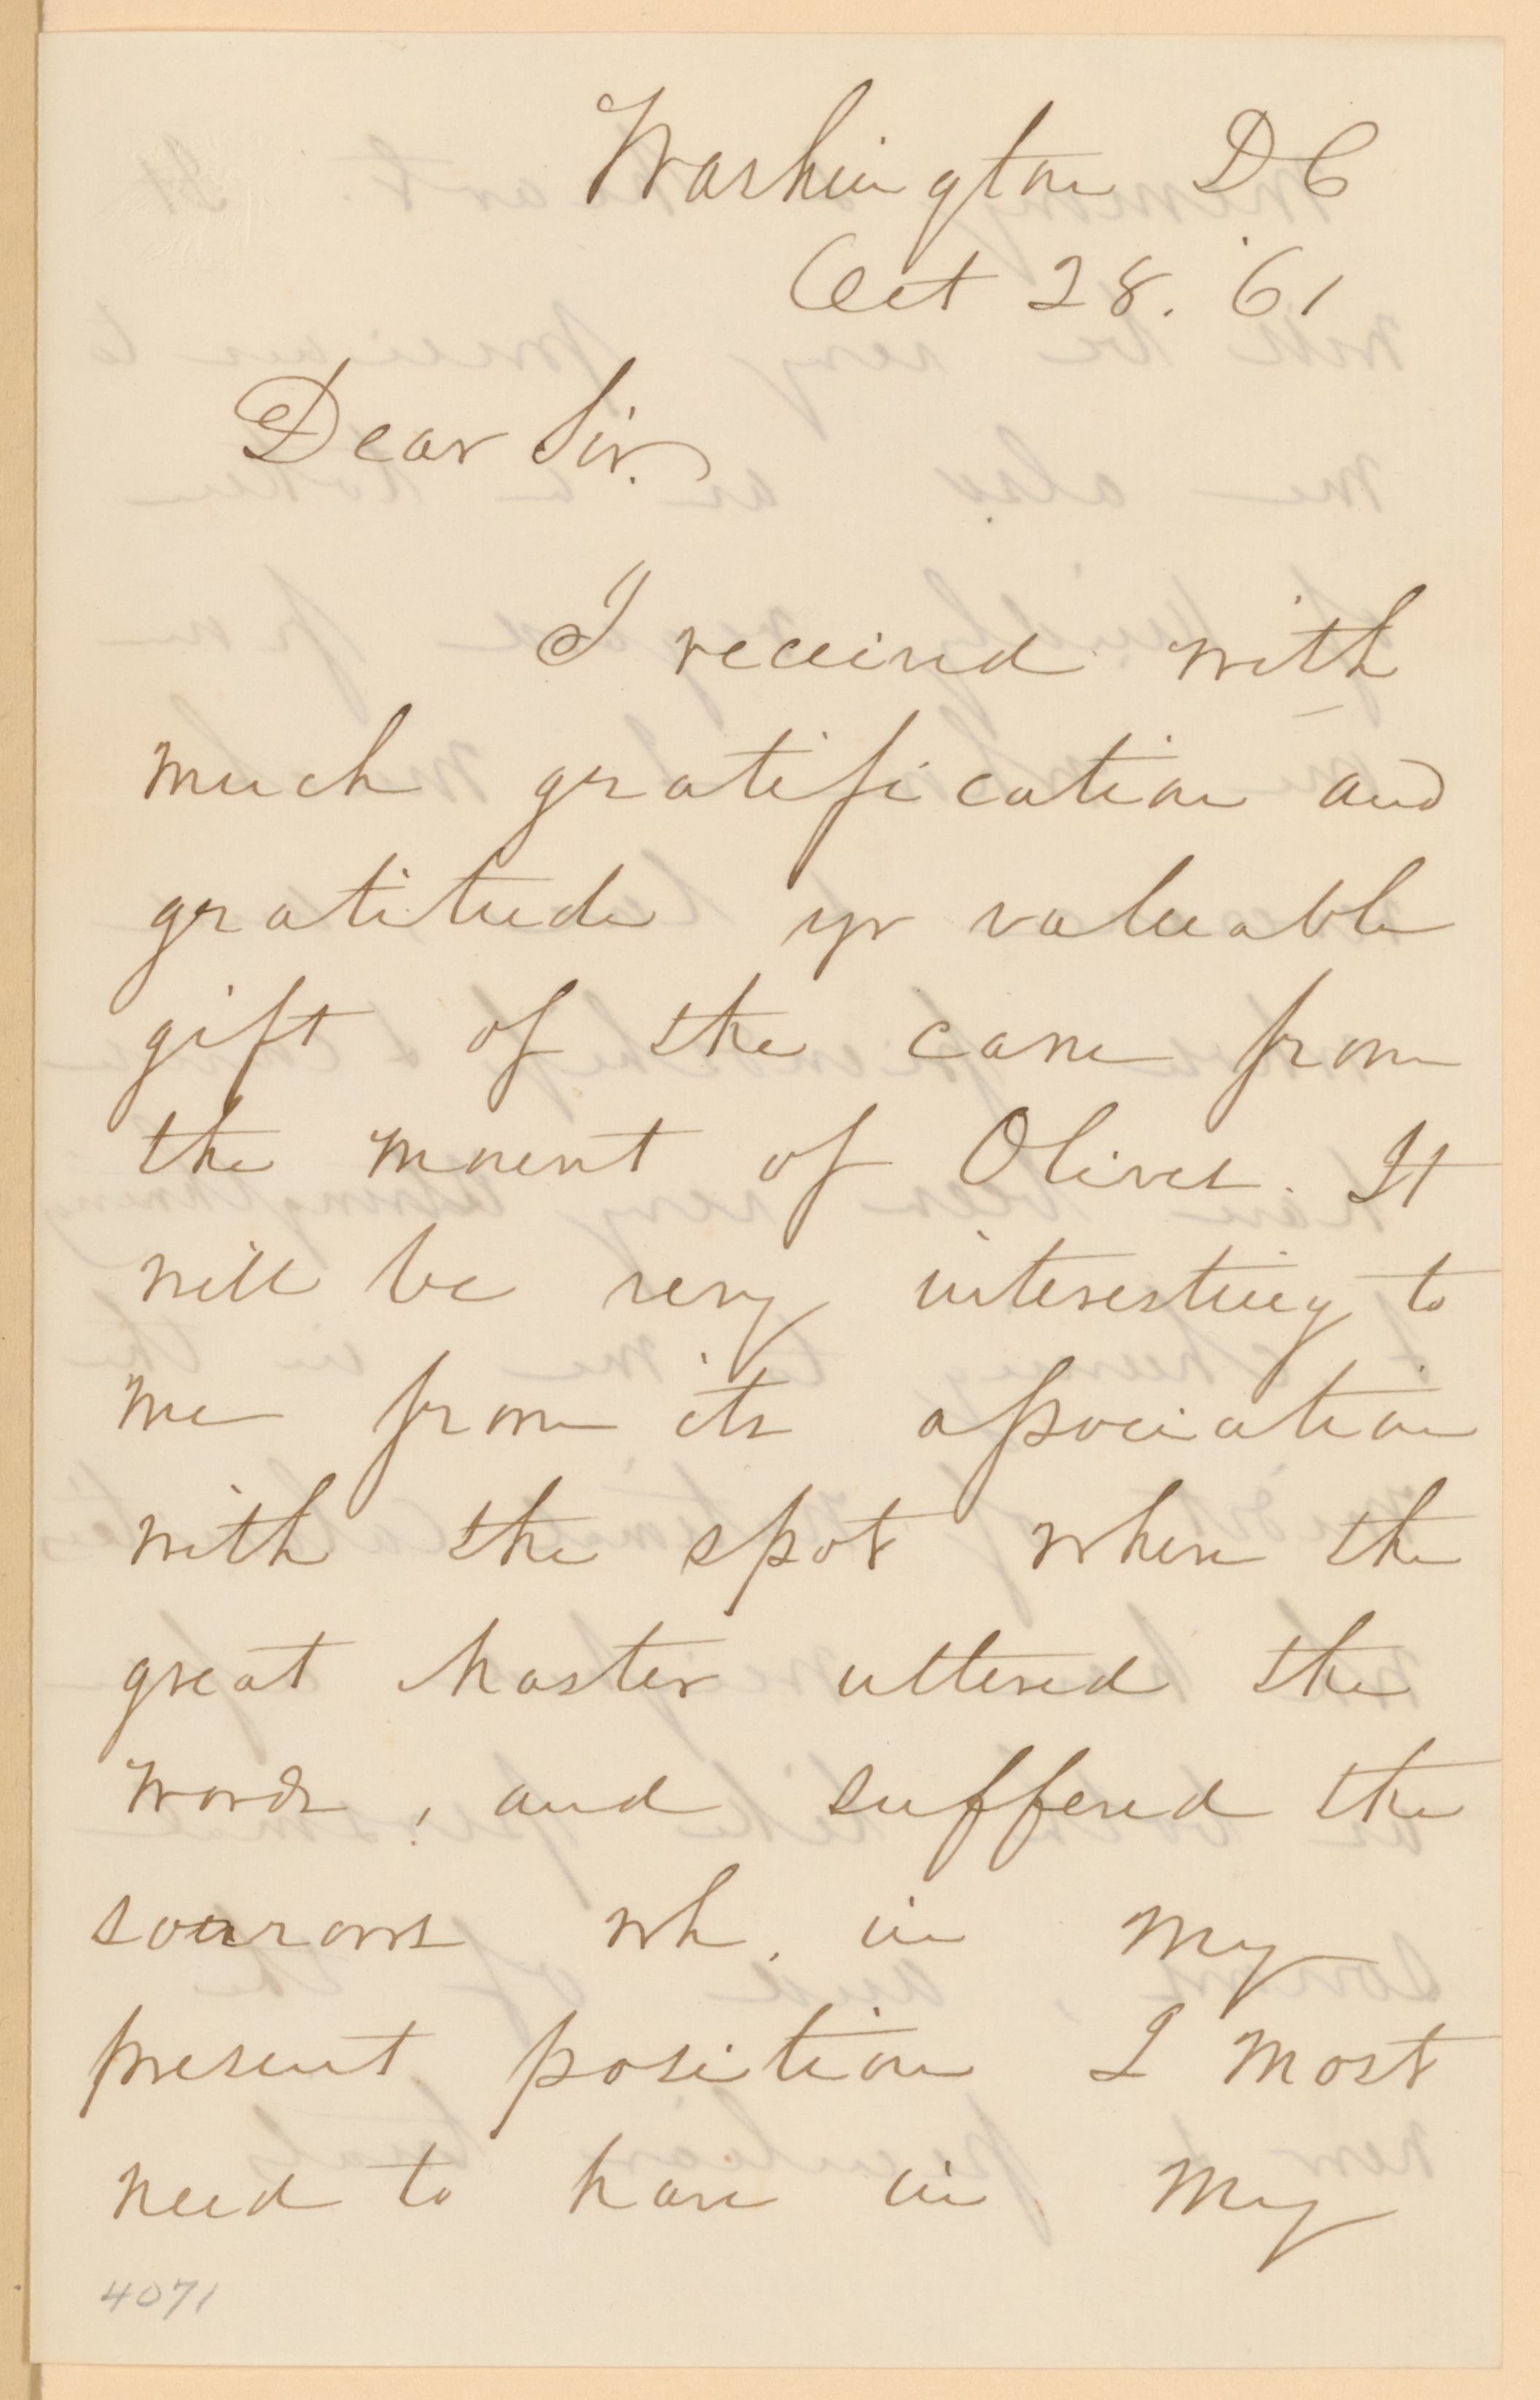 Washington D C
Oct 28. '61
Dear Sir.
I received with
much gratification and
gratitude yr valuable
gift of the cane from
the mount of Olives. It
will be very interesting to
me from its association
with the spot where the
great Master uttered the
words, and suffered the
sorrows wh. in my
present position I most
need to have in my
4071